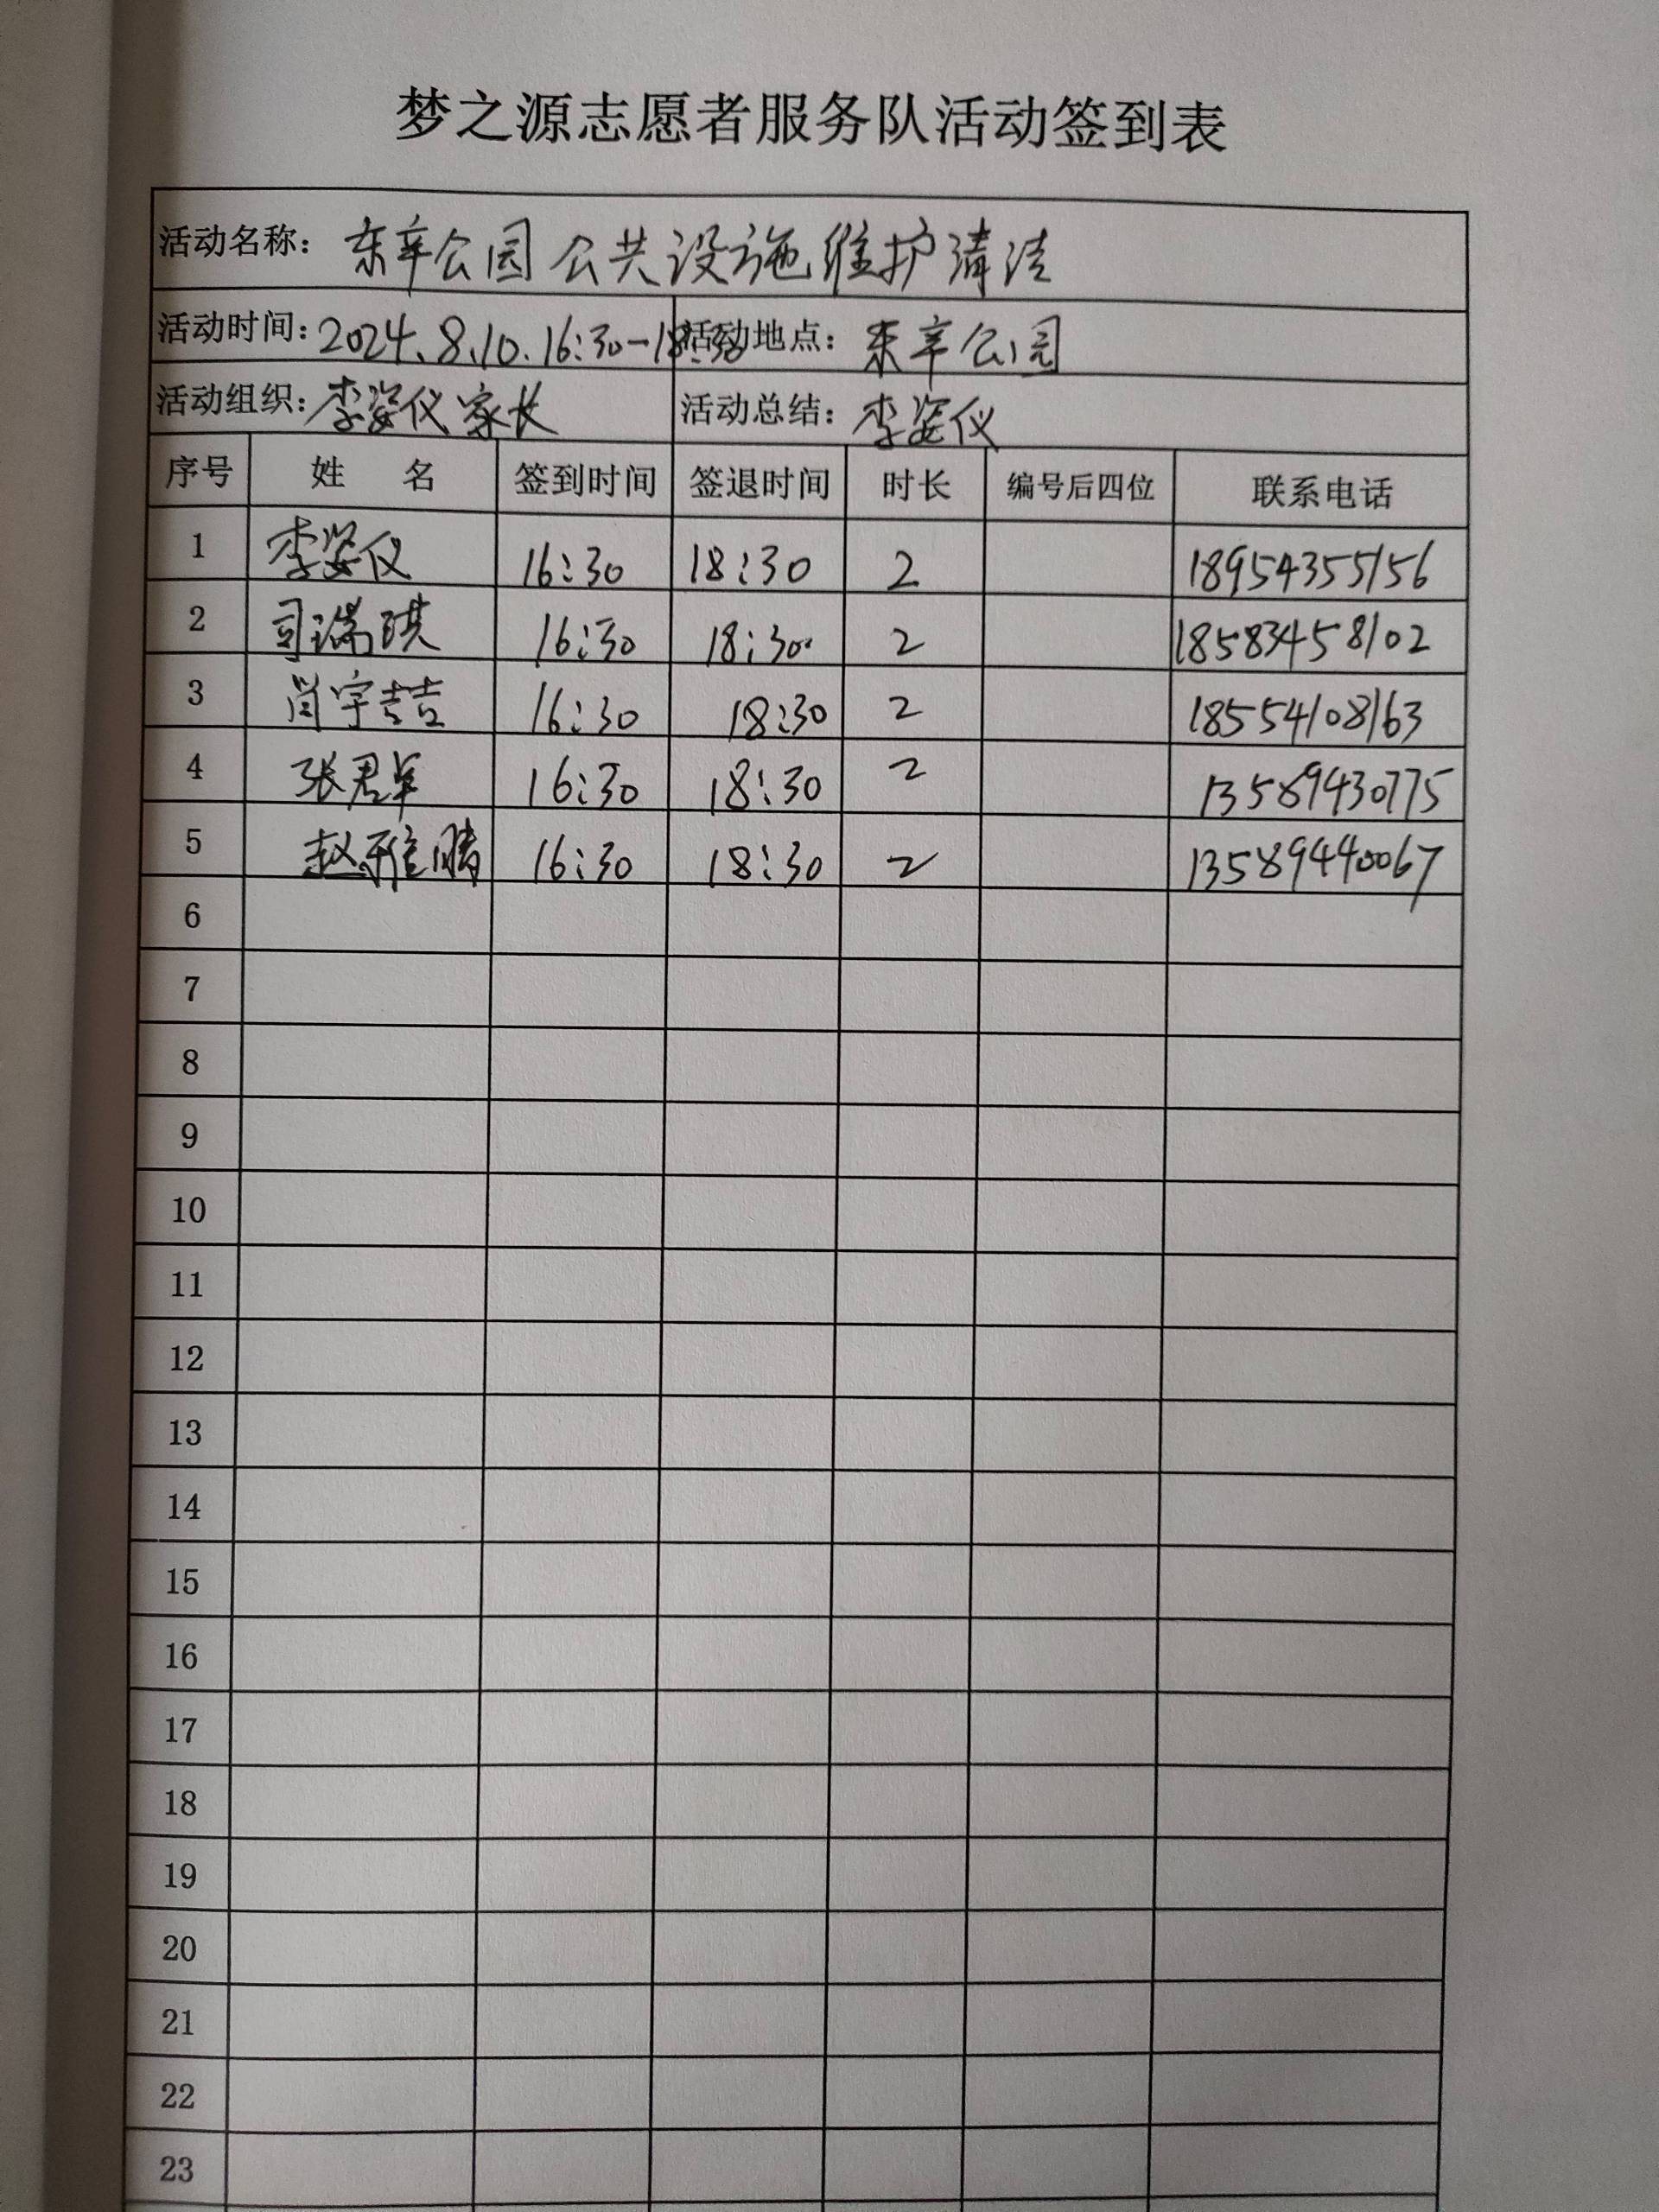 梦之源志愿者服务队活动签到表
活动名称：东辛公园公共设施维护清洁
活动时间：2024.8.10.16:30-18:30 活动地点：东辛公园
活动组织：李姿仪家长 活动总结：李姿仪
序号 姓名 签到时间 签退时间 时长 编号后四位 联系电话
1 李姿仪 16:30 18:30 2 18954355156
2 司瑞琪 16:30 18:30 2 18583458102
3 肖宇喆 16:30 18:30 2 18554108163
4 张君 16:30 18:30 2 13589430775
5 赵雅晴 16:30 18:30 2 13589440067
6
7
8
9
10
11
12
13
14
15
16
17
18
19
20
21
22
23